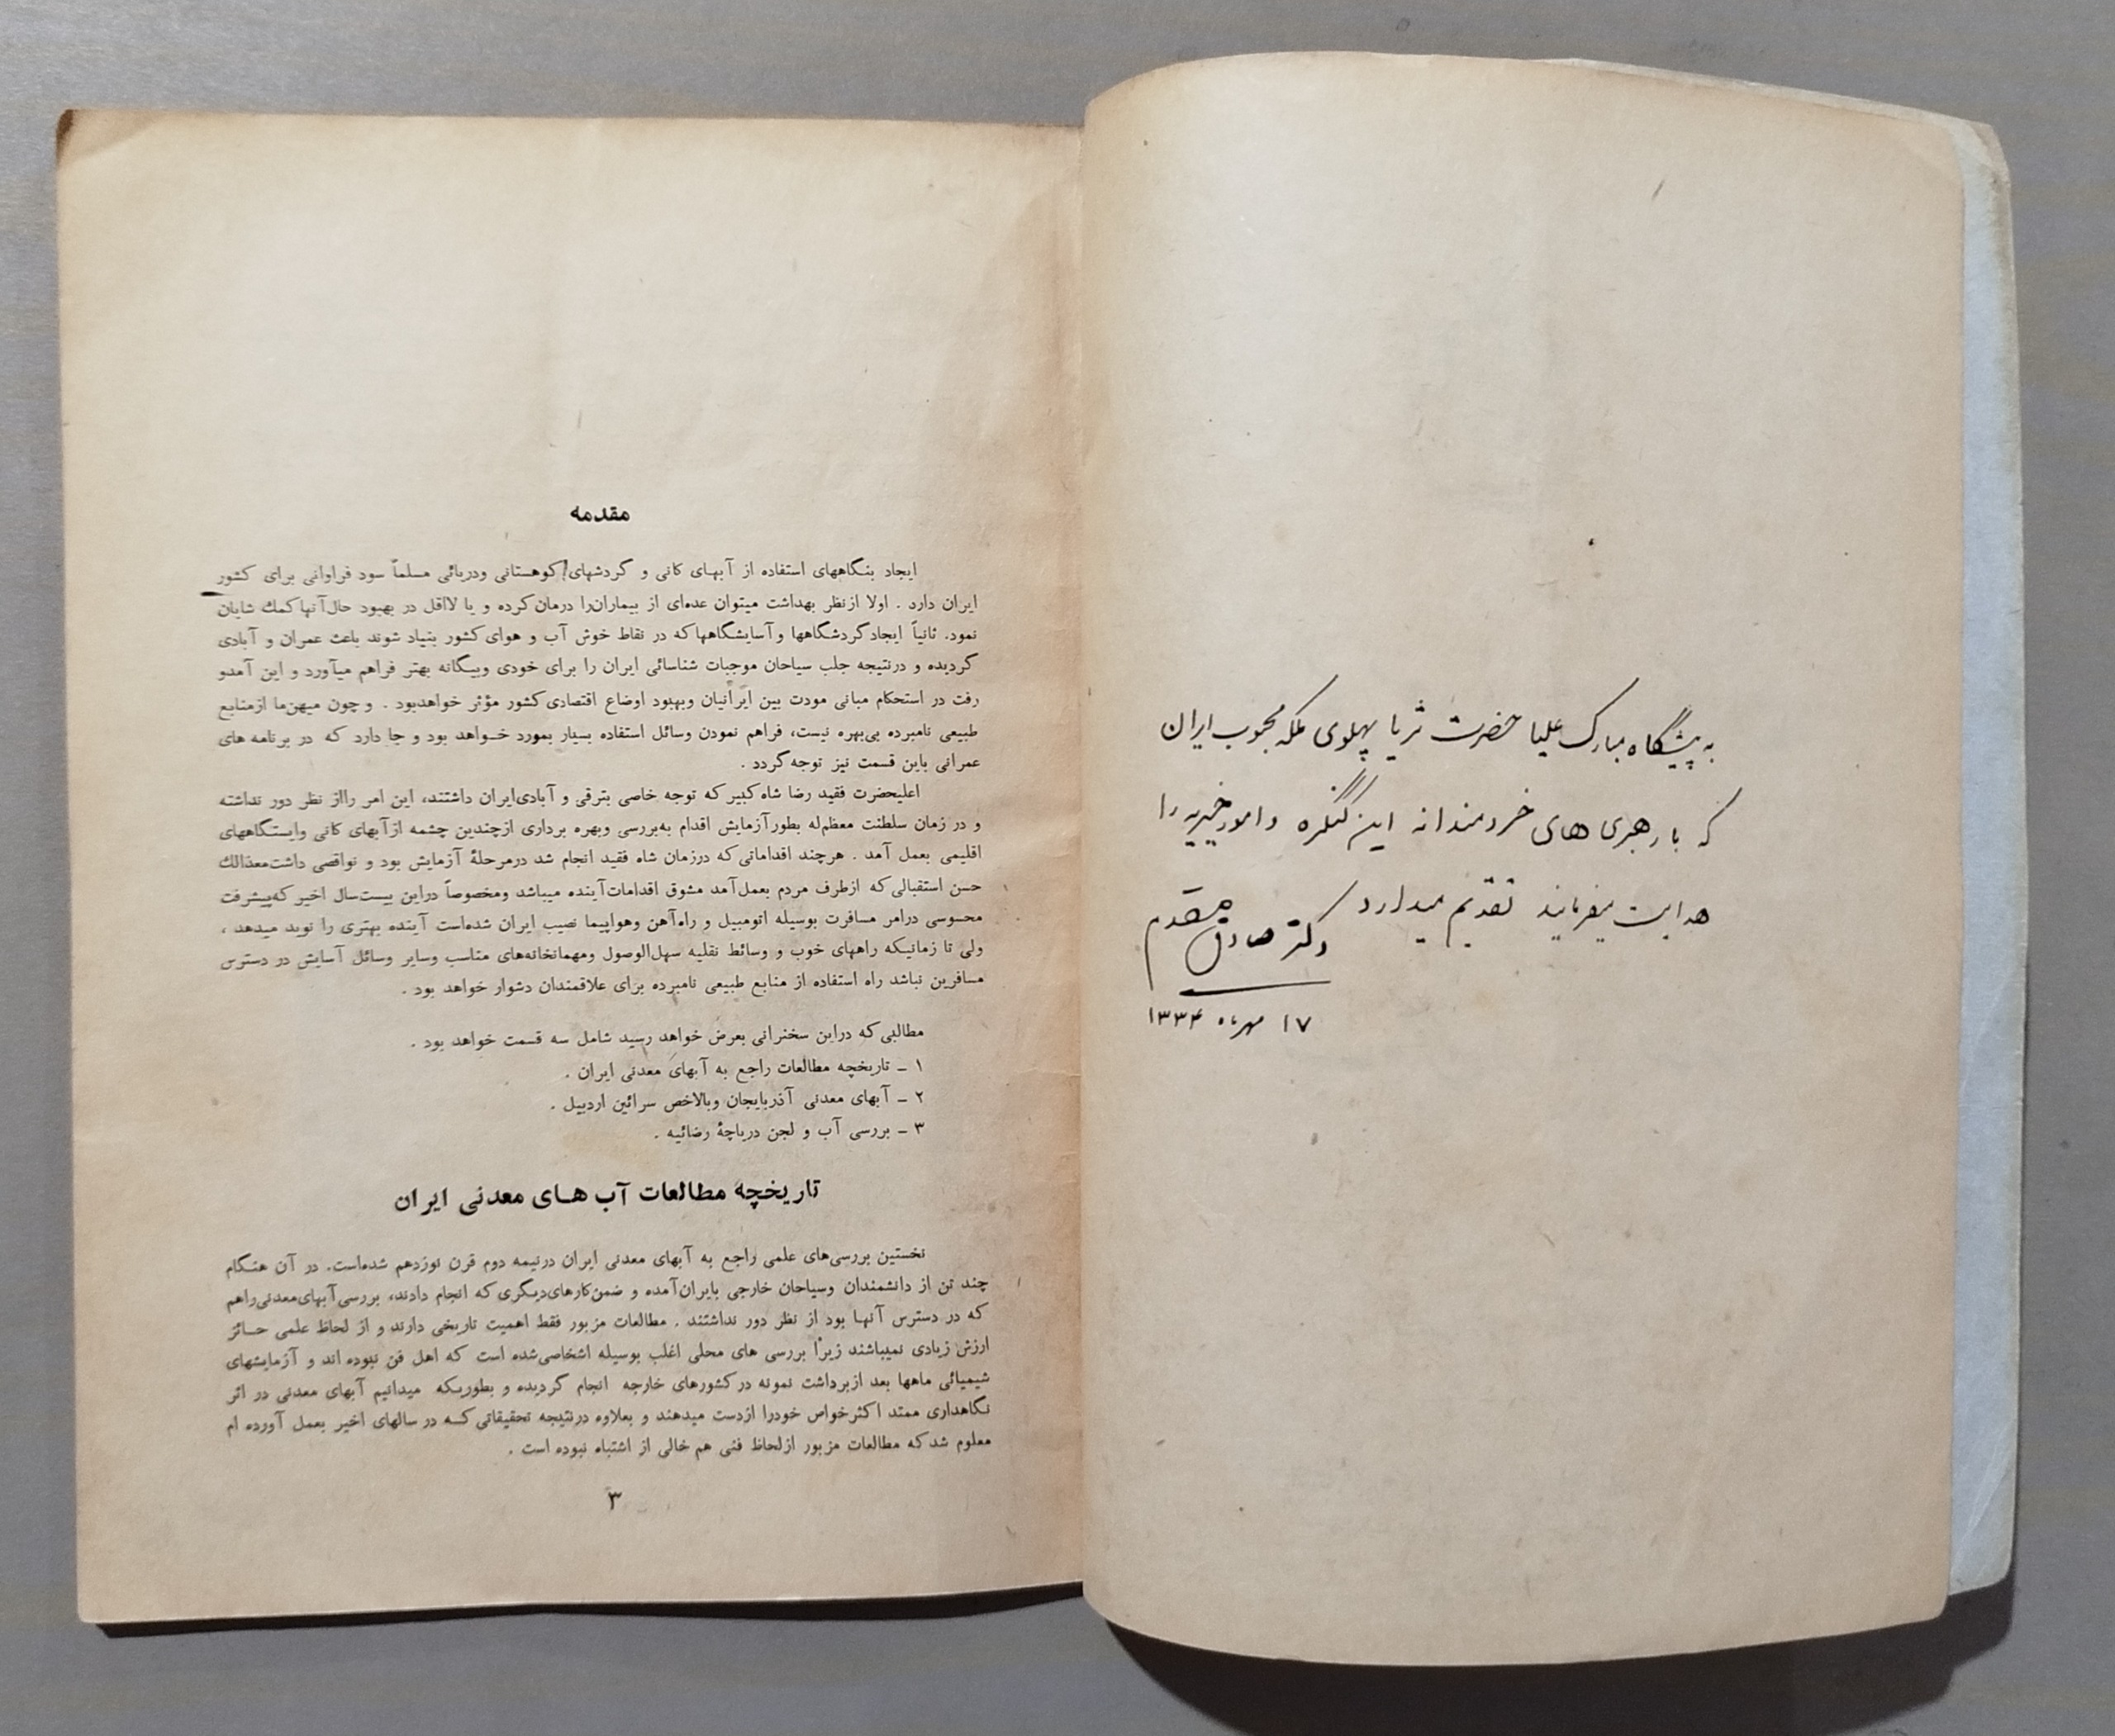 به پیشگاه مبارک علیا حضرت ثریا پهلوی ملکه محبوب ایران
که با رهبری های خردمندانه این کنگره و امور خیریه را
هدایت میفرمایند تقدیم میدارد
دکتر صادق مقدم
۱۷ مهرماه ۱۳۳۴
مقدمه
ایجاد بنگاههای استفاده از آبهای کانی و گردشهای کوهستانی ودریائی مسلماً سود فراوانی برای کشور
ایران دارد . اولا ازنظر بهداشت میتوان عده‌ای از بیماران‌را درمان کرده و یا لااقل در بهبود حال آنها کمك شایان
نمود. ثانیاً ایجاد گردشگاهها و آسایشگاهها که در نقاط خوش آب و هوای کشور بنیاد شوند باعث عمران و آبادی
گردیده و درنتیجه جلب سیاحان موجبات شناسائی ایران را برای خودی وبیگانه بهتر فراهم میآورد و این آمدو
رفت در استحکام مبانی مودت بین ایرانیان وبهبود اوضاع اقتصادی کشور مؤثر خواهدبود . و چون میهن‌ما ازمنابع
طبیعی نامبرده بی‌بهره نیست، فراهم نمودن وسائل استفاده بسیار بمورد خواهد بود و جا دارد که در برنامه های
عمرانی باین قسمت نیز توجه گردد .
اعلیحضرت فقید رضا شاه کبیر که توجه خاصی بترقی و آبادی ایران داشتند، این امر رااز نظر دور نداشته
و در زمان سلطنت معظم‌له بطور آزمایش اقدام به‌بررسی وبهره برداری ازچندین چشمه ازآبهای کانی وایستگاههای
اقلیمی بعمل آمد . هرچند اقداماتی که درزمان شاه فقید انجام شد درمرحلهٔ آزمایش بود و نواقصی داشت‌معذالك
حسن استقبالی که ازطرف مردم بعمل آمد مشوق اقدامات آینده میباشد ومخصوصاً دراین بیست‌سال اخیر که‌پیشرفت
محسوسی درامر مسافرت بوسیله اتومبیل و راه‌آهن وهواپیما نصیب ایران شده‌است آینده بهتری را نوید میدهد ،
ولی تا زمانیکه راههای خوب و وسائط نقلیه سهل‌الوصول ومهمانخانه‌های مناسب وسایر وسائل آسایش در دسترس
مسافرین نباشد راه استفاده از منابع طبیعی نامبرده برای علاقمندان دشوار خواهد بود .
مطالبی که دراین سخنرانی بعرض خواهد رسید شامل سه قسمت خواهد بود .
۱ ـ تاریخچه مطالعات راجع به آبهای معدنی ایران .
۲ ـ آبهای معدنی آذربایجان وبالاخص سرائین اردبیل .
۳ ـ بررسی آب و لجن دریاچهٔ رضائیه .
تاریخچه مطالعات آب هـای معدنی ایران
نخستین بررسی‌های علمی راجع به آبهای معدنی ایران درنیمه دوم قرن نوزدهم شده‌است. در آن هنگام
چند تن از دانشمندان وسیاحان خارجی بایران‌آمده و ضمن کارهای‌دیگری که انجام دادند، بررسی آبهای‌معدنی‌راهم
که در دسترس آنها بود از نظر دور نداشتند . مطالعات مزبور فقط اهمیت تاریخی دارند و از لحاظ علمی حـائز
ارزش زیادی نمیباشند زیرا بررسی های محلی اغلب بوسیله اشخاصی‌شده است که اهل فن نبوده اند و آزمایشهای
شیمیائی ماهها بعد ازبرداشت نمونه در کشورهای خارجه انجام گردیده و بطوریکه میدانیم آبهای معدنی در اثر
نگاهداری ممتد اکثرخواص خودرا ازدست میدهند و بعلاوه درنتیجه تحقیقاتی کـه در سالهای اخیر بعمل آورده ام
معلوم شد که مطالعات مزبور ازلحاظ فنی هم خالی از اشتباه نبوده است .
۳